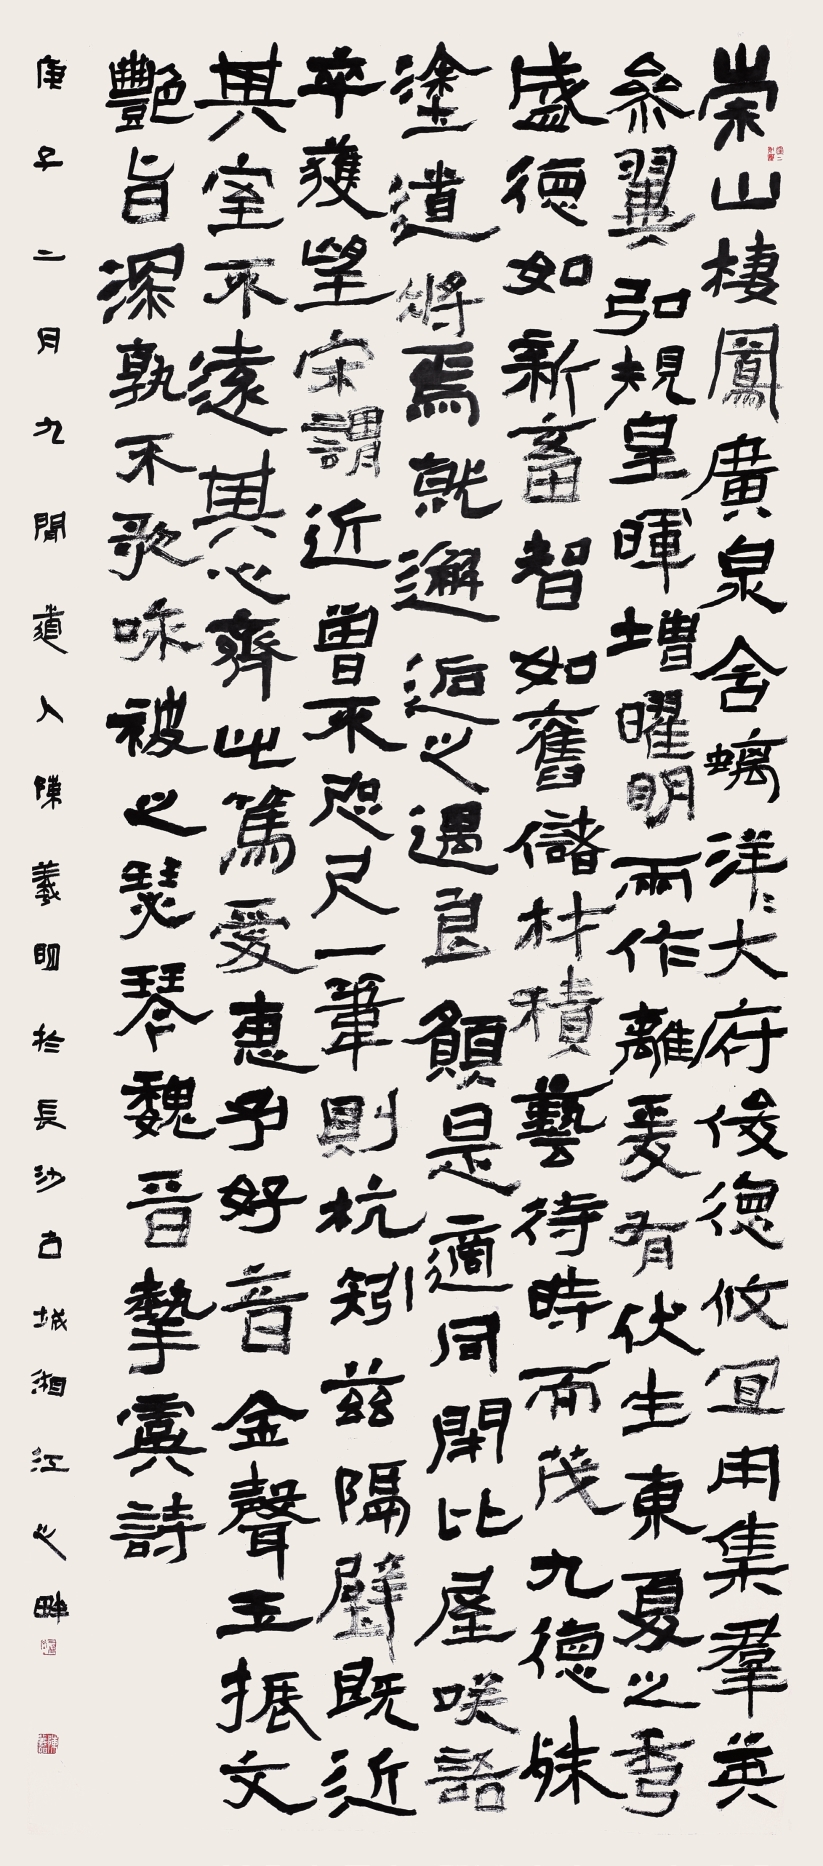 崇山棲鳳廣泉舍螭洋〻大府俊德攸宜用集羣英
參翼弘規皇暉增曜明兩作離爰有伏生東夏之秀
盛德如新畜智如舊儲材積藝待時而茂九德殊
塗道將焉就邂逅之遇良願是適同閈比屋咲語
卒獲望宋謂近曾不咫尺一葦則杭矧茲隔壁既近
其室不遠其心齊此篤愛惠予好音金聲玉振文
艷旨深孰不歌咏被之瑟琴魏晉摯虞詩
庚子二月九聞道人陳羲明於長沙古城湘江之畔